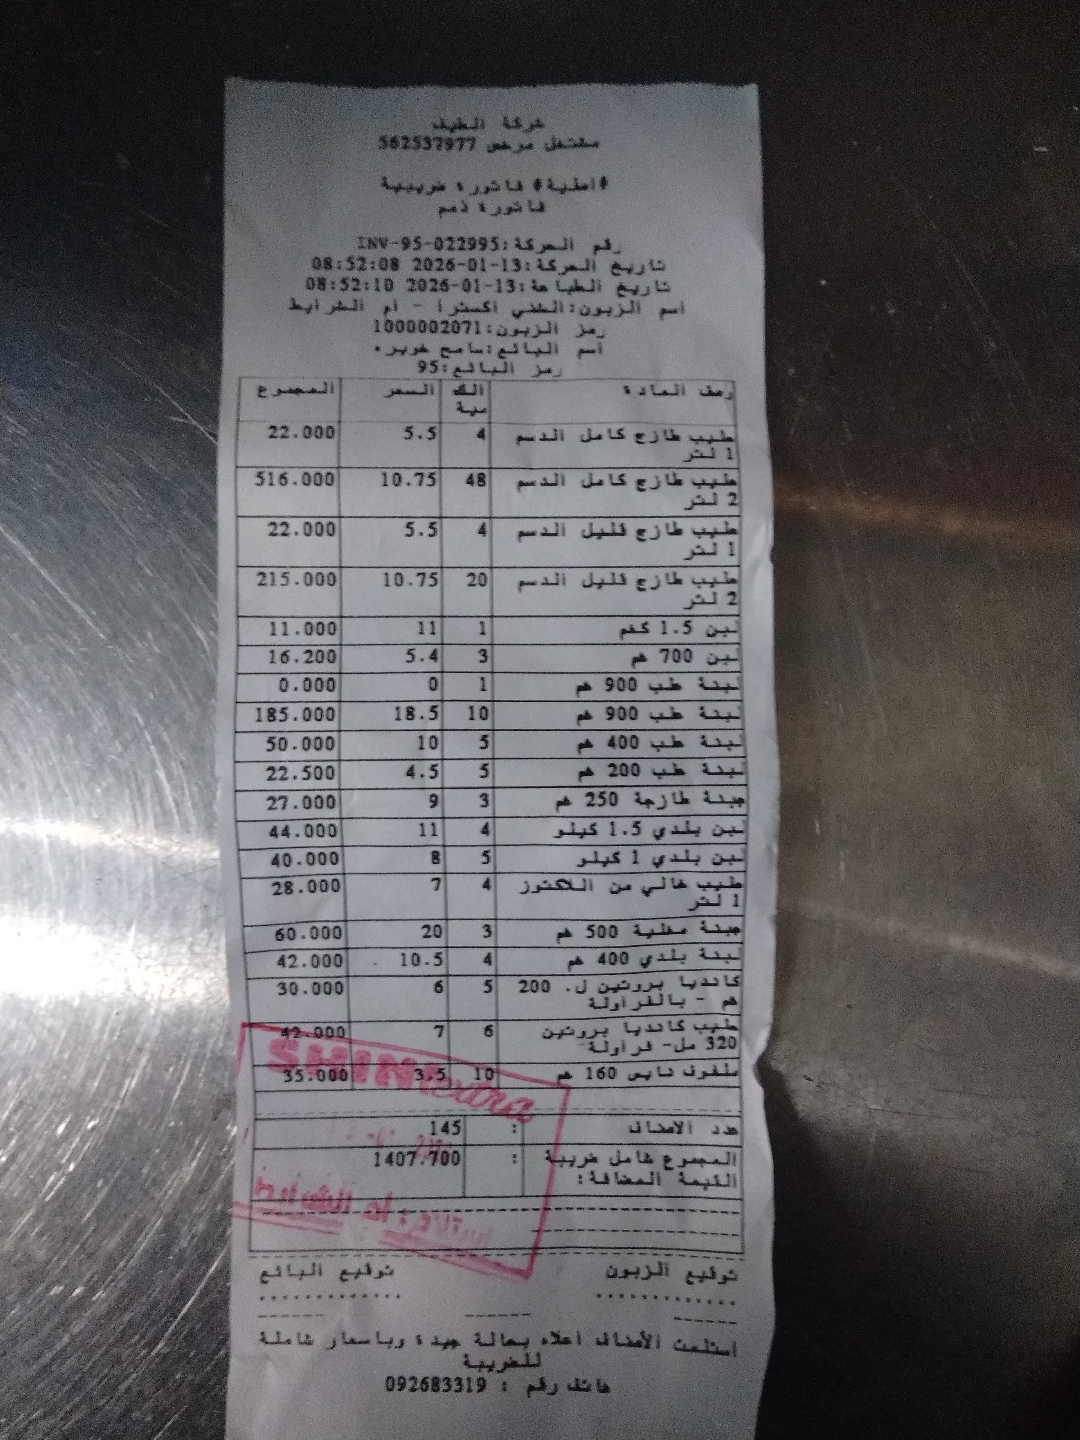 شركة الطيف
مشتغل مرخص 562537977
#اصلية# فاتورة ضريبية
فاتورة ذمم
رقم الحركة:INV-95-022995
تاريخ الحركة:13-01-2026 08:52:08
تاريخ الطباعة:13-01-2026 08:52:10
اسم الزبون:الشني اكسترا - ام الشرايط
رمز الزبون:1000002071
اسم البائع:سامح خويره
رمز البائع:95
وصف المادة الكمية السعر المجموع
حليب طازج كامل الدسم 1 لتر 4 5.5 22.000
حليب طازج كامل الدسم 2 لتر 48 10.75 516.000
حليب طازج قليل الدسم 1 لتر 4 5.5 22.000
حليب طازج قليل الدسم 2 لتر 20 10.75 215.000
لبن 1.5 كغم 1 11 11.000
لبن 700 غم 3 5.4 16.200
لبنة طب 900 غم 1 0 0.000
لبنة طب 900 غم 10 18.5 185.000
لبنة طب 400 غم 5 10 50.000
لبنة طب 200 غم 5 4.5 22.500
جبنة طازجة 250 غم 3 9 27.000
لبن بلدي 1.5 كيلو 4 11 44.000
لبن بلدي 1 كيلو 5 8 40.000
حليب خالي من اللاكتوز 1 لتر 4 7 28.000
جبنة مغلية 500 غم 3 20 60.000
لبنة بلدي 400 غم 4 10.5 42.000
كانديا بروتين ل. 200 غم - بالفراولة 5 6 30.000
حليب كانديا بروتين 320 مل- فراولة 6 7 42.000
ملفوف نايس 160 غم 10 3.5 35.000
SHINI extra
عدد الاصناف : 145
المجموع شامل ضريبة القيمة المضافة: : 1407.700
استلام : ام الشرايط
توقيع الزبون توقيع البائع
استلمت الأصناف اعلاه بحالة جيدة وباسعار شاملة
للضريبة
هاتف رقم : 092683319